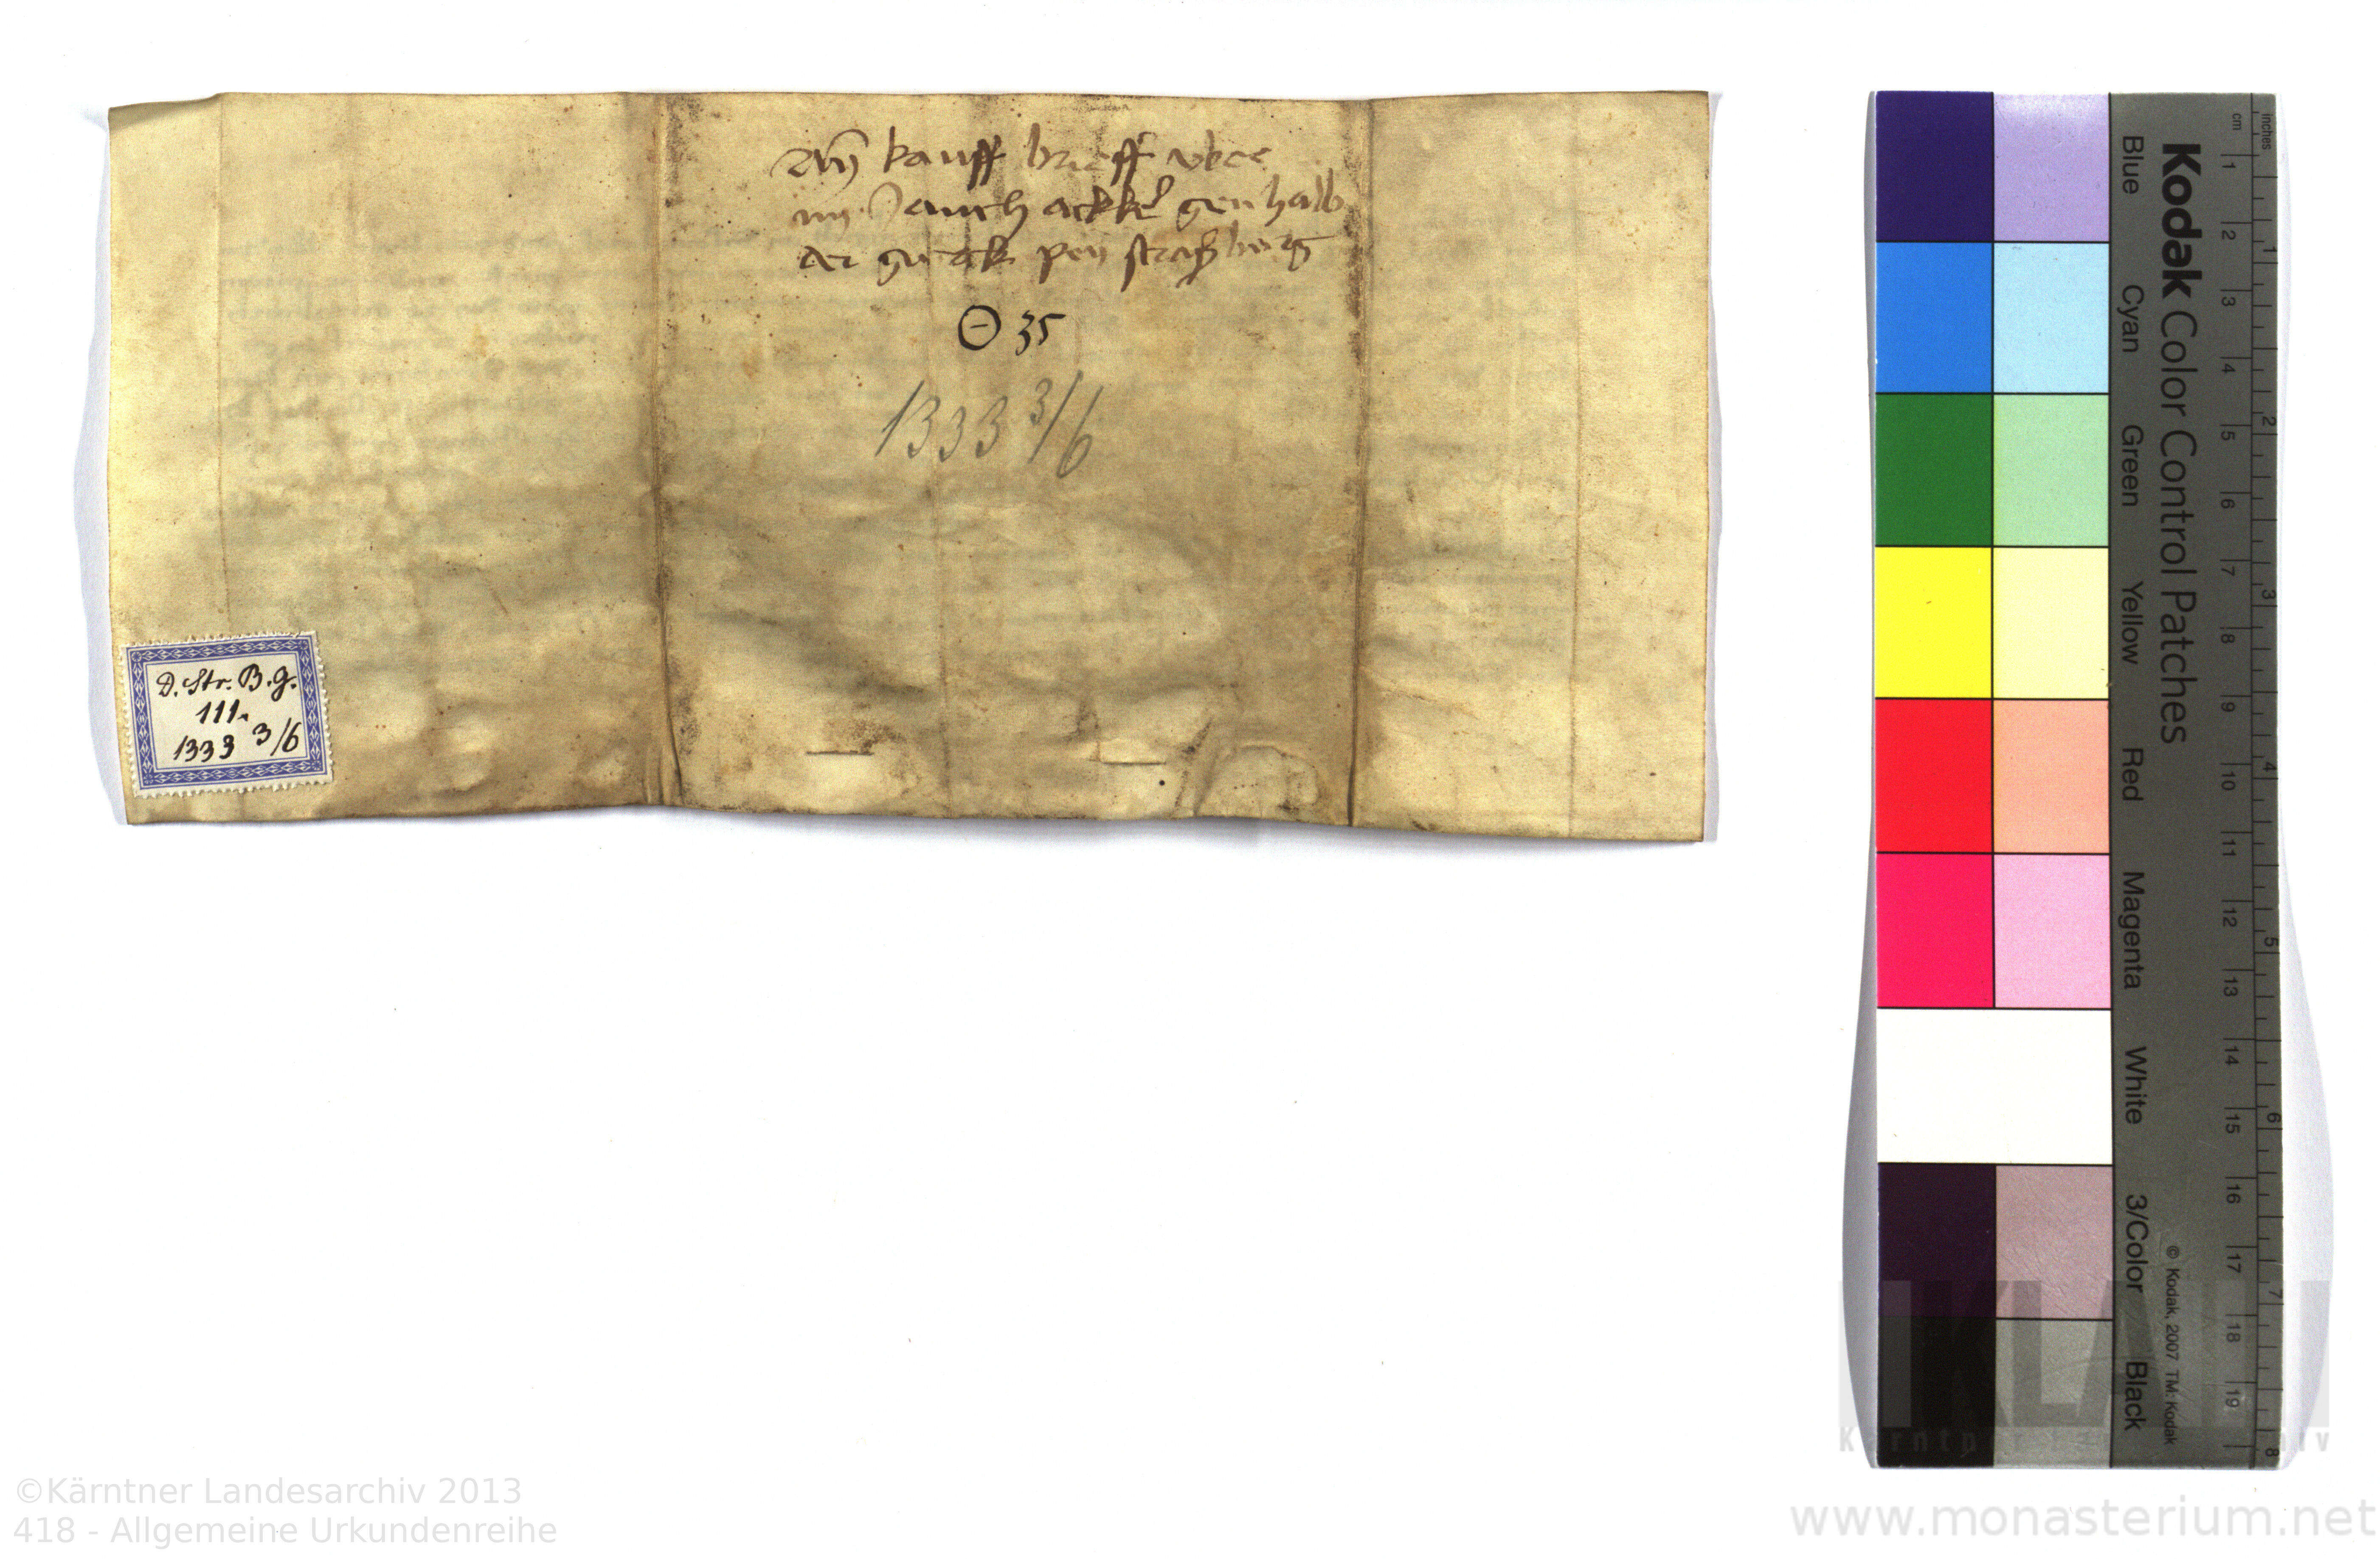 Ain kauff brieff vber
iiij Jauch akker gen halb
der gurk pey straßburg
Θ 35
1333 3/6
D. Str. B. G.
111.
1333 3/6
Kodak Color Control Patches
Blue Cyan Green Yellow Red Magenta White 3/Color Black
© Kodak, 2007 TM: Kodak
cm 1 2 3 4 5 6 7 8 9 10 11 12 13 14 15 16 17 18 19
inches 1 2 3 4 5 6 7 8
KLA
Kärntner
©Kärntner Landesarchiv 2013
418 - Allgemeine Urkundenreihe
www.monasterium.net